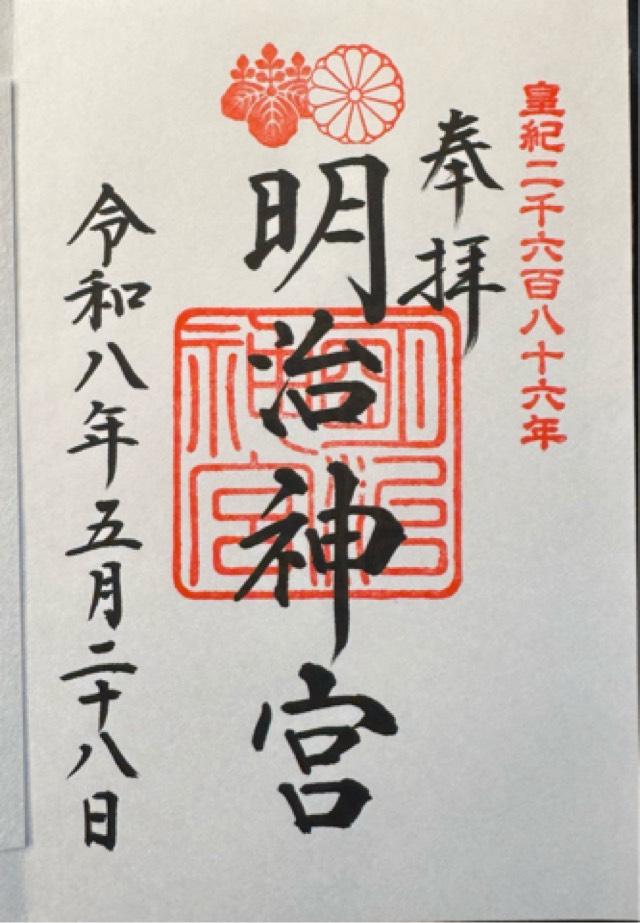 皇紀二千六百八十六年
奉拝
明治神宮
明治神宮
令和八年五月二十八日